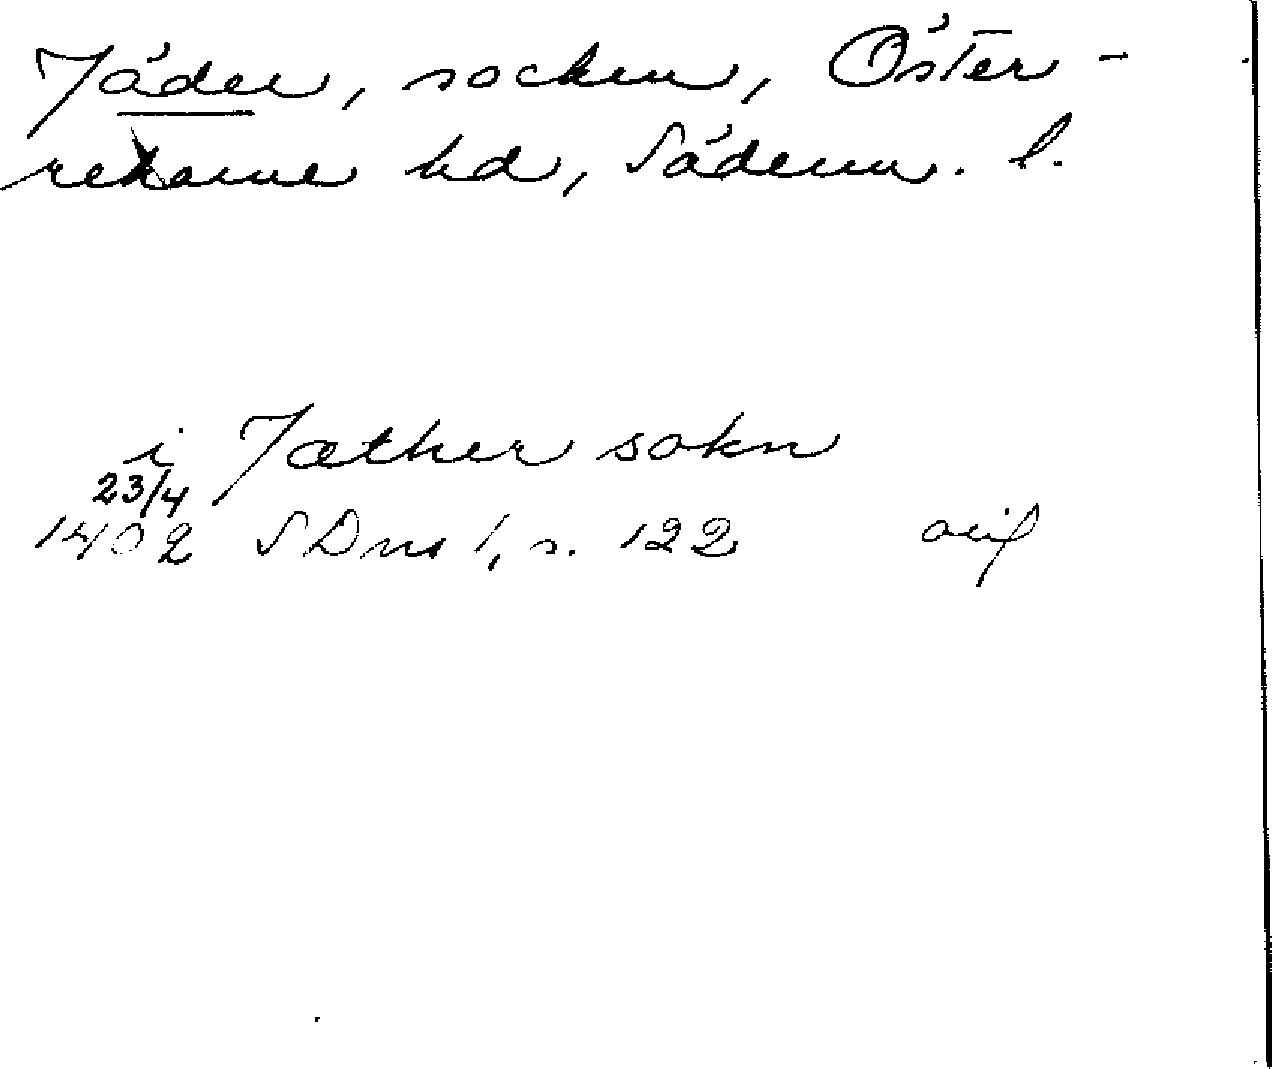 Jäder, socken, Öster-
rekarne hd, Söderm. l.
i Jæther sokn
23/4
1402 SDns 1, s. 122 orig